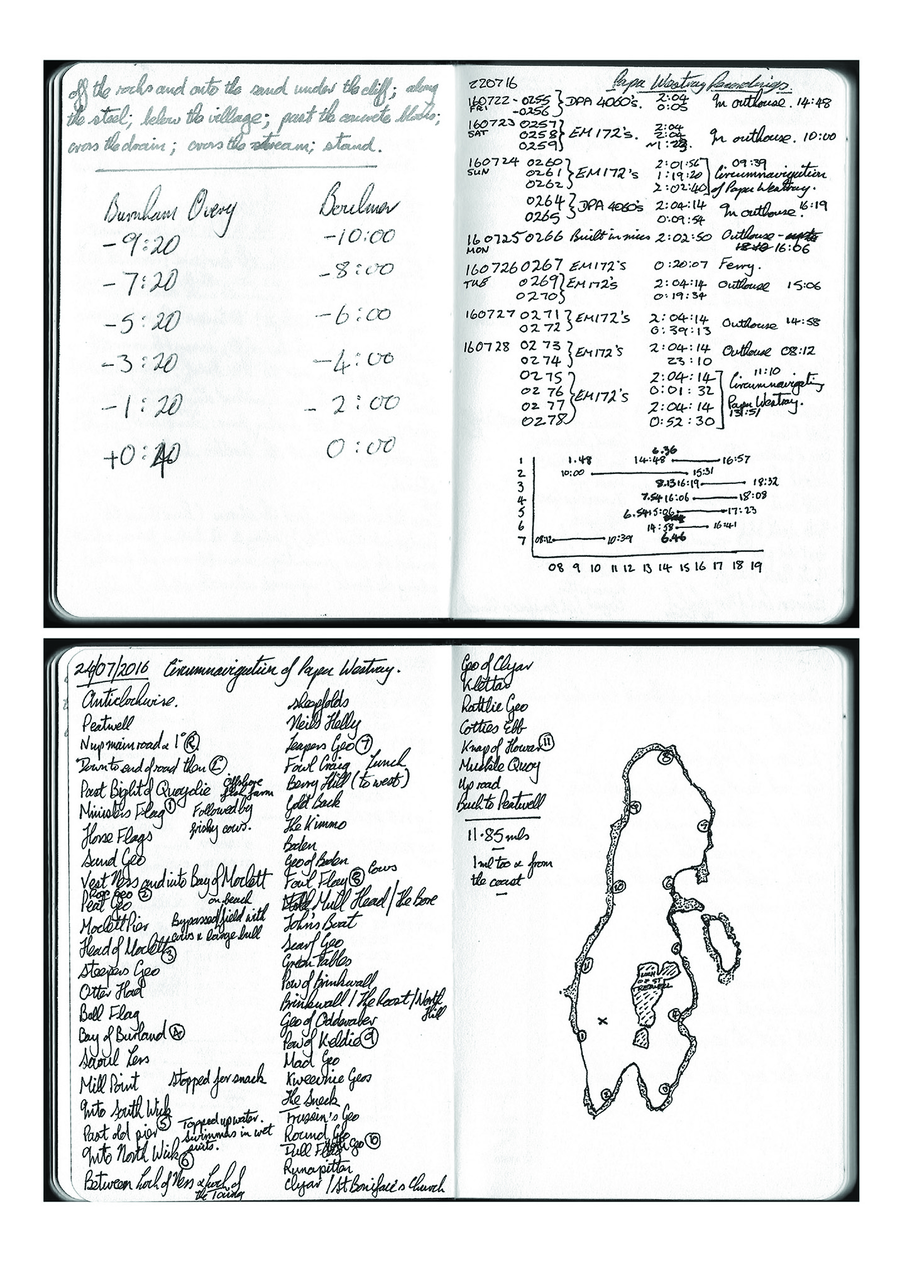 off the rocks and onto the sand under the cliff; along
the steel; below the village; past the concrete blocks;
across the drain; across the stream; stand.
Burnham Overy
-9:20
-7:20
-5:20
-3:20
-1:20
+0:40
-10:00
-8:00
-6:00
-4:00
-2:00
0:00
220716 Papa Westray Recordings.
160722 - 0255 } DPA 4060's. 2:04 In outhouse. 14:48
FRI -0256 0:05
160723 0257 } EM172's. 2:04 In outhouse. 10:00
SAT 0258 2:04
0259 ~1:28
160724 0260 } EM172's 2:01:56 09:39
SUN 0261 1:19:20 Circumnavigation
0262 2:02:40 of Papa Westray.
0264 } DPA 4060's 2:04:14 16:19
0265 0:09:54 In outhouse.
160725 0266 Built in mics 2:02:50 Outhouse -
MON 16:06
160726 0267 } EM172's 0:20:07 Ferry.
TUE 0269 } EM172's 2:04:14 Outhouse 15:06
0270 0:19:34
160727 0271 } EM172's 2:04:14 Outhouse 14:58
0272 0:39:13
160728 0273 } EM172's 2:04:14 Outhouse 08:12
0274 23:10
0275 } EM172's 2:04:14 11:10
0276 0:01:32 Circumnavigating
0277 2:04:14 Papa Westray.
0278 0:52:30 13:51
6.36
1 1.48 14:48 16:57
2 10:00 15:31
3 8.13 16:19 18:32
4 7.54 16:06 18:08
5 6.54 15:06 17:23
6 14:58 16:41
7 08:12 10:39 6.46
08 9 10 11 12 13 14 15 16 17 18 19
24/07/2016 Circumnavigation of Papa Westray.
Anticlockwise.
Peatwell
Nup main road & 1° (R)
Down to end of road then (L)
Past Bight of Quoydie Offshore fish farm
Ministers Flag (1) Followed by
Horse Flags frisky cows.
Sand Geo
Vest Ness and into Bay of Moclett
Peat Geo (2) on beach
Moclett Pier Bypassed field with
Head of Moclett (3) cows & large bull
Steepers Geo
Otter Had
Ball Flag
Bay of Burland (4)
Scoul Lers
Mill Point Stopped for snack
Into South Wick
Past old pier (5) Topped up water.
Into North Wick (6) Swimmers in wet suits.
Between Loch of Ness & Loch of
the Toung
sheepfolds
Neils Helly
Leapers Geo (7)
Fowl Craig Lunch
Berry Hill (to west)
Gold Back
The Kimmo
Boden
Geo of Boden
Foul Flag (8) Cows
Mull Head / The Bore
John's Boat
Scarf Geo
Green Tables
Pow of Brinkwall
Brinkwall / The Roost / North
Hill
Geo of Oddevaber
Pow of Keldie (9)
Mad Geo
Kweevnie Geos
The Sneck
Trussin's Geo
Round Geo
Dull Flag Geo (10)
Runapitten
Clyar / St Boniface's Church
Geo of Clyar
Klettar
Rattlie Geo
Cotties Ebb
Knap of Howar (11)
Muckle Quoy
Up road
Back to Peatwell
11.85 mls
1ml too & from
the coast
LOCH
OF ST
TREDWELL
x